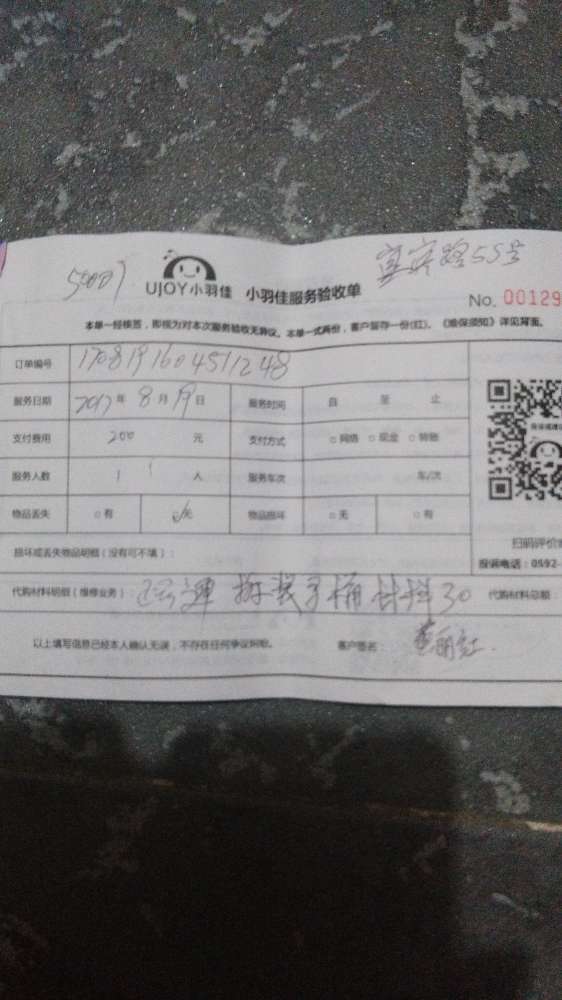 宜宾路55号
UJOY小羽佳 小羽佳服务验收单
No. 00129
本单一经核签，即视为对本次服务验收无异议。本单一式两份，客户留存一份(红)。《维保须知》详见背面。
订单编号 170819160451248
服务日期 2017年 8月 19日 服务时间 自 至 止
支付费用 200 元 支付方式 □ 网络 □ 现金 □ 转账
服务人数 1 人 服务车次 车/次
物品丢失 □ 有 □ 无 物品损坏 □ 无 □ 有
扫码评价
损坏或丢失物品明细（没有可不填）：
投诉电话：0592-
代购材料明细（维修业务）： 拆装马桶材料30 代购材料总额：
以上填写信息已经本人确认无误，不存在任何争议纠纷。 客户签名：